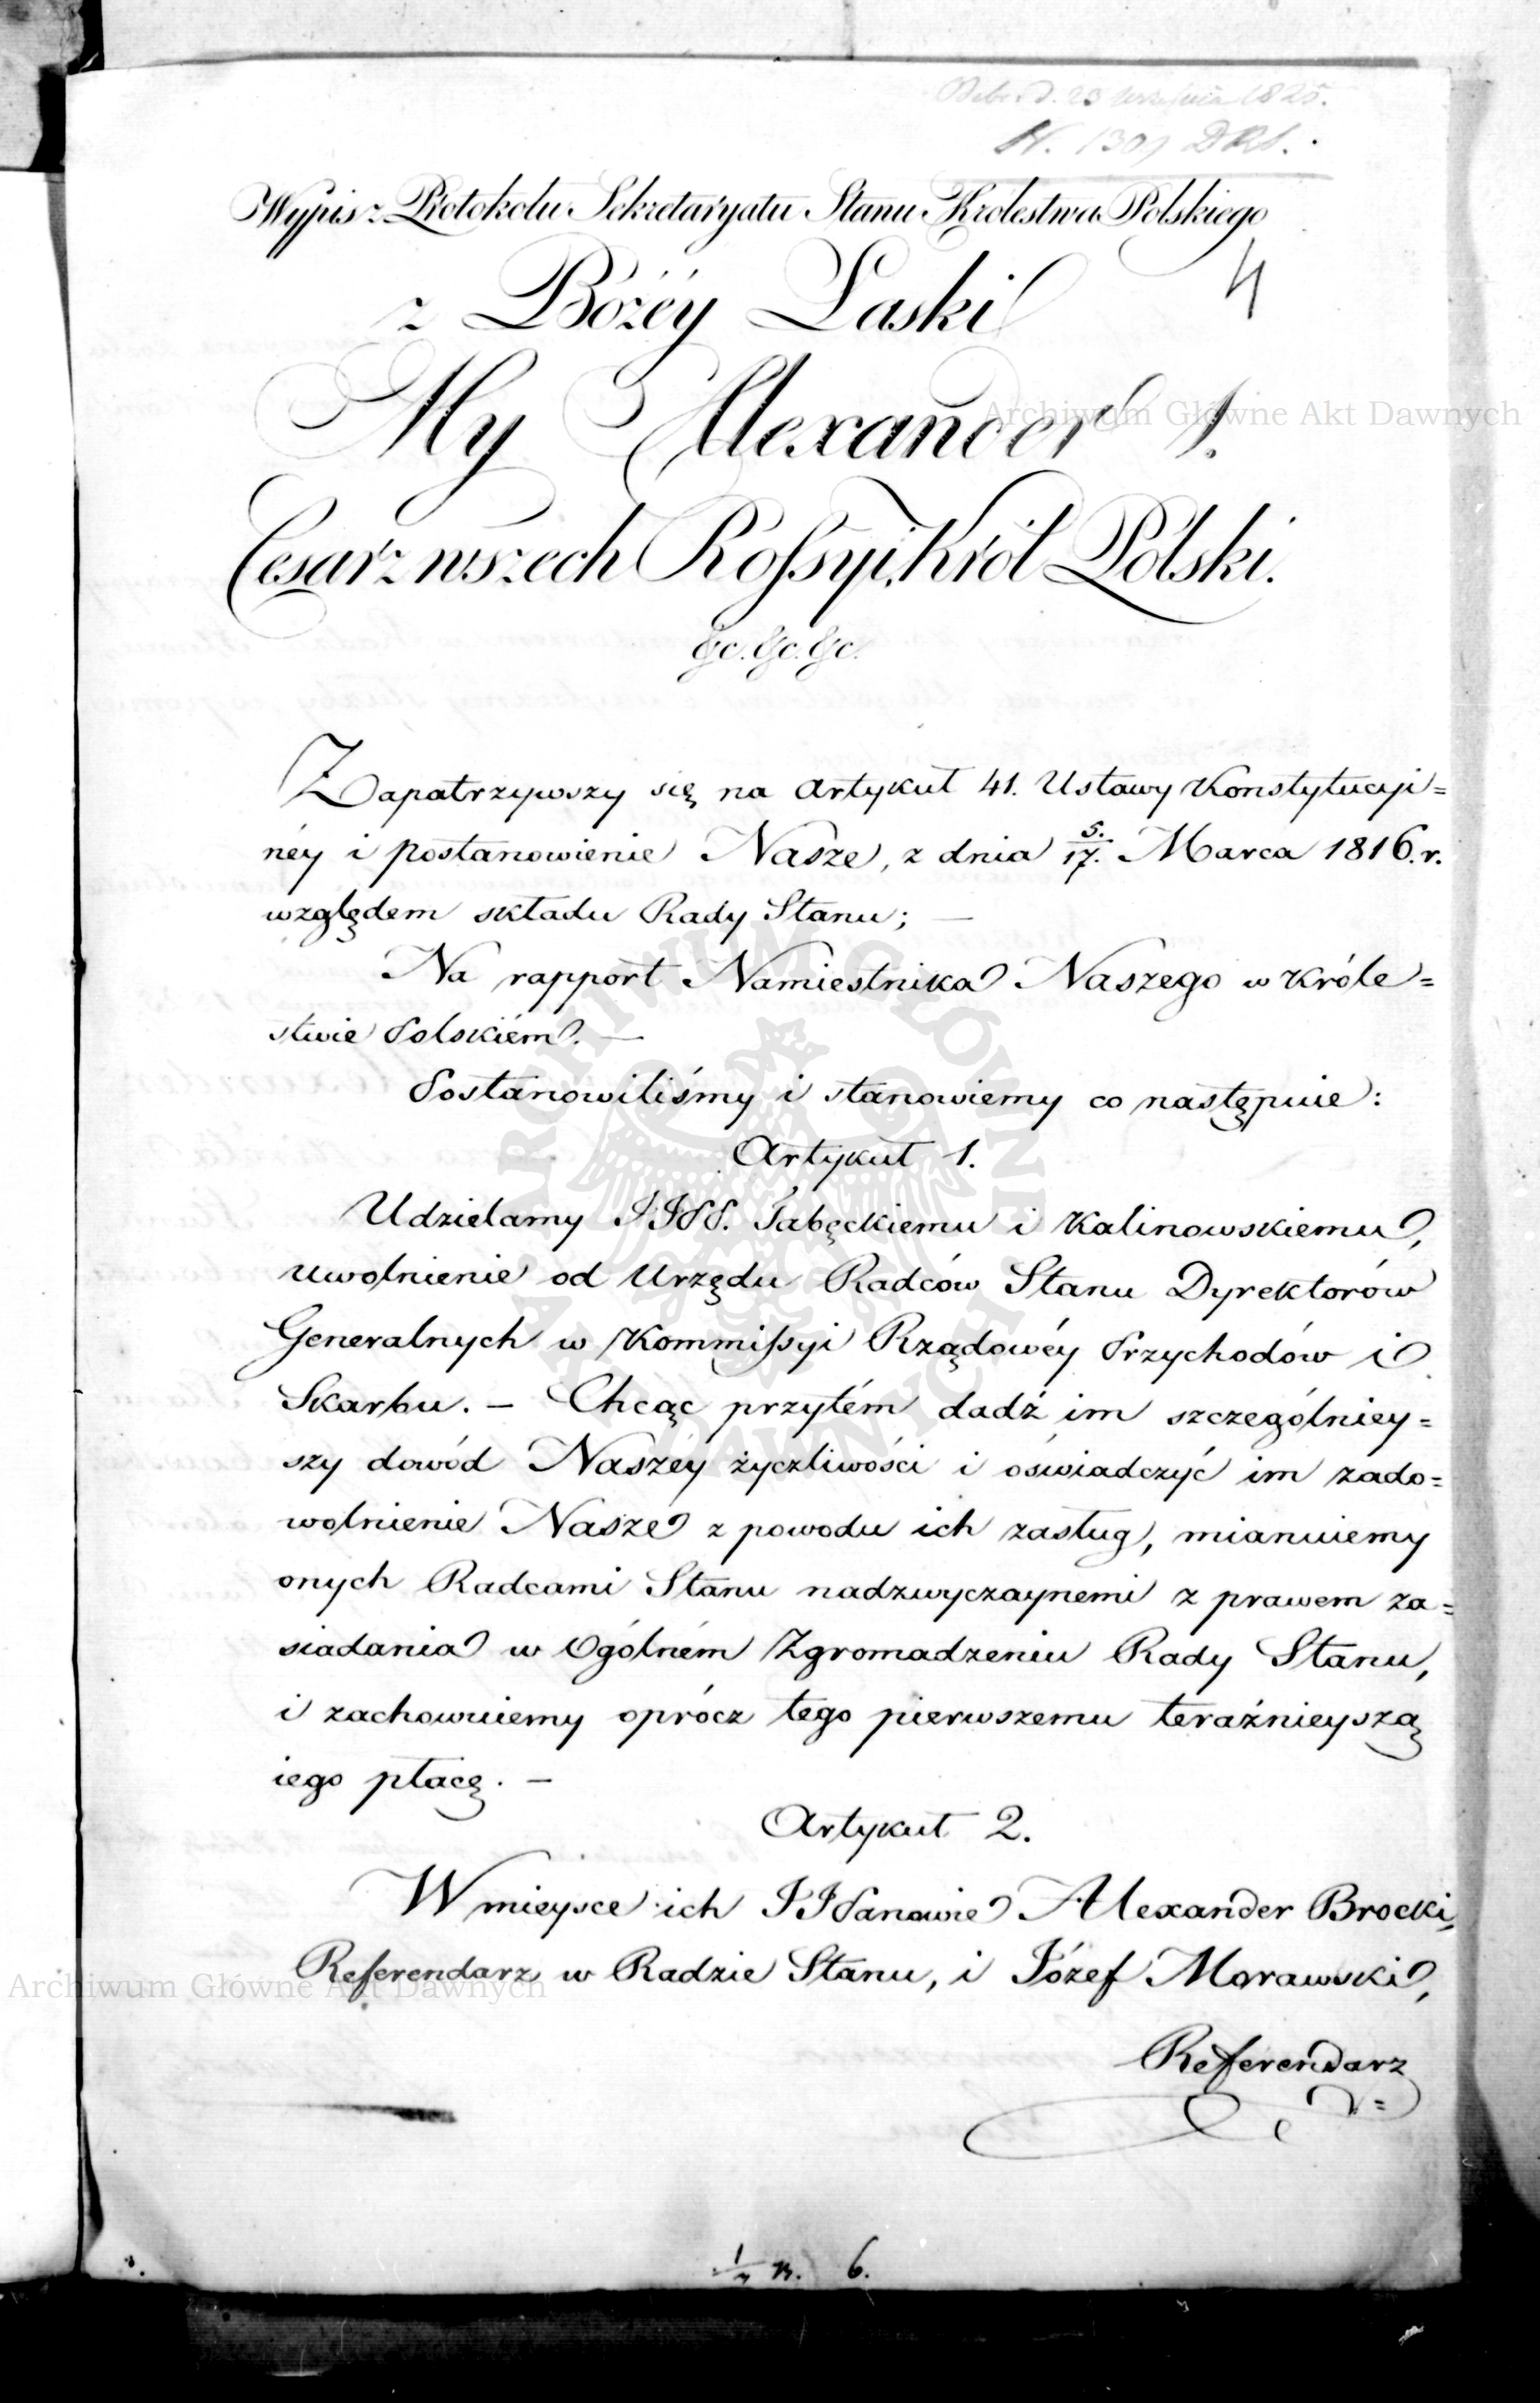 d. 23 września 1825.
N. 1309 DRS.
Wypis z Protokołu Sekretaryatu Stanu Królestwa Polskiego
4
z Bożéy Łaski
My Alexander I.
Cesarz wszech Rossyi, Król Polski.
&c. &c. &c.
Zapatrzywszy się na Artykuł 41. Ustawy Konstytucyi=
néy i postanowienie Nasze, z dnia 5./17. Marca 1816. r.
względem składu Rady Stanu; —
Na rapport Namiestnika Naszego w Króle=
stwie Polskiém. —
Postanowiliśmy i stanowiemy co następuie:
Artykuł 1.
Udzielamy JJPP. Łabęckiemu i Kalinowskiemu,
uwolnienie od Urzędu Radców Stanu Dyrektorów
Generalnych w Kommissyi Rządowéy Przychodów i
Skarbu. — Chcąc przytém dadź im szczególniey=
szy dowód Naszéy życzliwości i oświadczyć im zado=
wolnienie Nasze z powodu ich zasług, mianuiemy
onych Radcami Stanu nadzwyczaynemi z prawem za=
siadania w Ogólném Zgromadzeniu Rady Stanu,
i zachowuiemy oprócz tego pierwszemu teraźnieyszą
iego płacę. —
Artykuł 2.
W mieysce ich JJPanowie Alexander Brocki,
Referendarz w Radzie Stanu, i Józef Morawski,
Referendarz
6.
Archiwum Główne Akt Dawnych
Archiwum Główne Akt Dawnych
ARCHIWUM GŁÓWNE AKT DAWNYCH